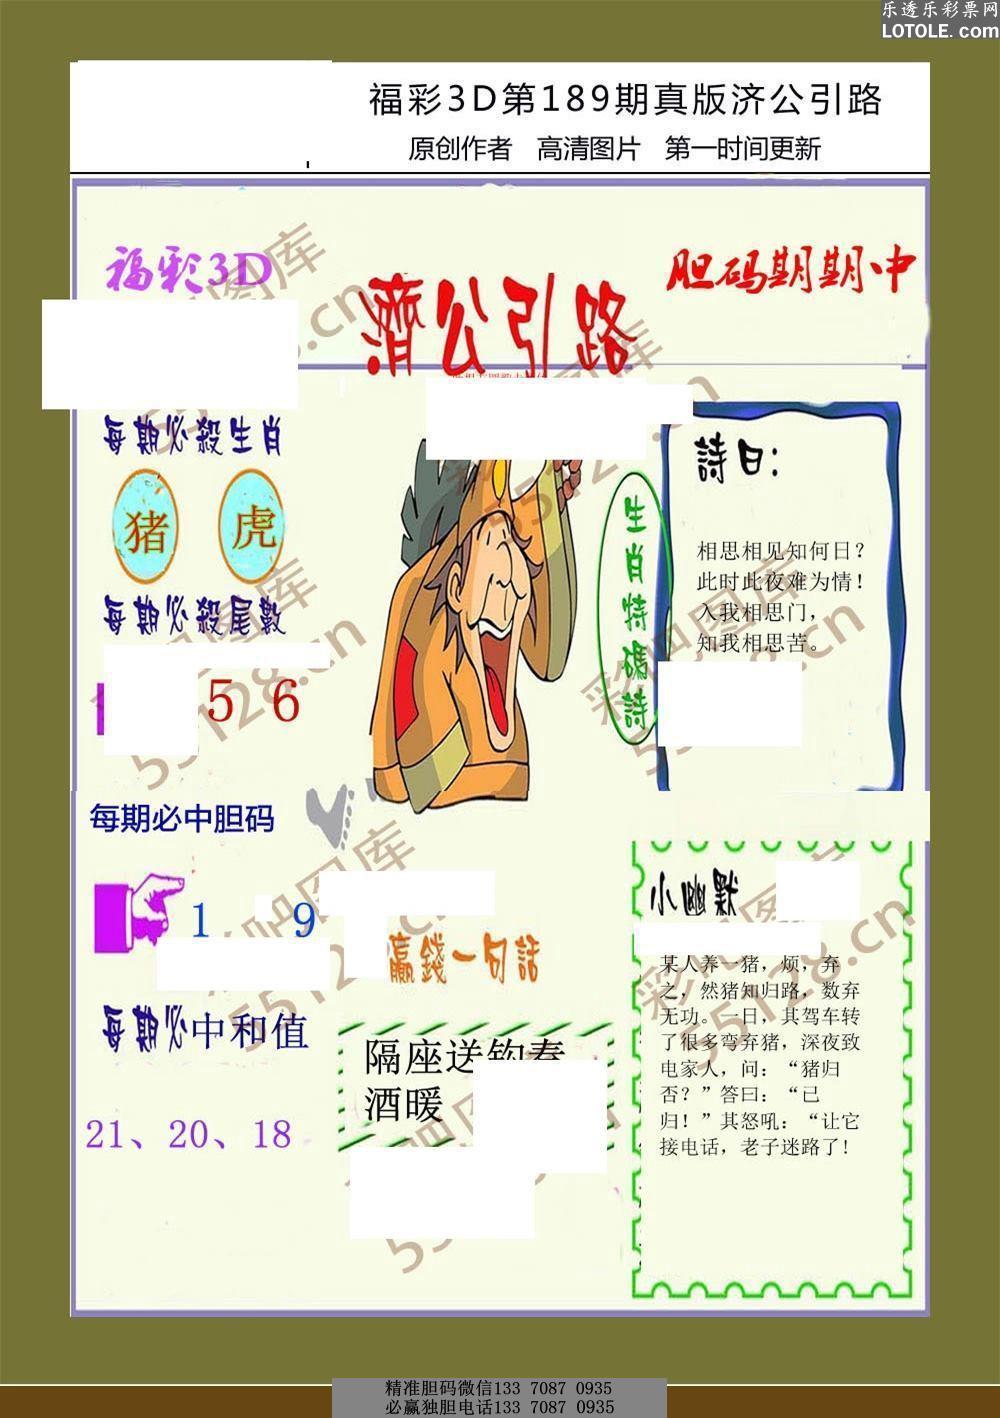 乐透乐彩票网
LOTOLE.com
福彩3D第189期真版济公引路
原创作者 高清图片 第一时间更新
福彩3D
濟公引路
胆码期期中
每期必殺生肖
猪 虎
每期必殺尾數
5 6
每期必中胆码
1 9
每期必中和值
21、20、18
生肖特碼詩
詩曰:
相思相见知何日?
此时此夜难为情!
入我相思门,
知我相思苦。
赢錢一句話
隔座送钩春
酒暖
小幽默
某人养一猪，烦，弃
之，然猪知归路，数弃
无功。一日，其驾车转
了很多弯弃猪，深夜致
电家人，问：“猪归
否？”答曰：“已
归！”其怒吼：“让它
接电话，老子迷路了!
彩吧图库
55128.cn
精准胆码微信133 7087 0935
必赢独胆电话133 7087 0935